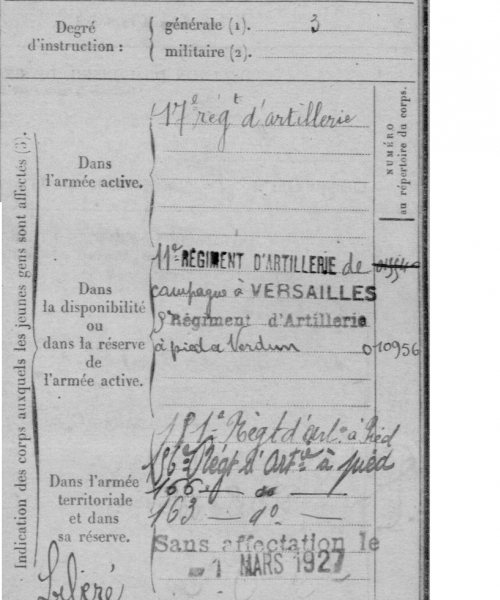 Degré
d'instruction :
générale (1). 3
militaire (2).
Indication des corps auxquels les jeunes gens sont affectés (3).
NUMÉRO
au répertoire du corps.
Dans
l'armée active.
17e régt d'artillerie
Dans
la disponibilité
ou
dans la réserve
de
l'armée active.
11e RÉGIMENT D'ARTILLERIE de
campagne à VERSAILLES
Régiment d'Artillerie
à pied à Verdun 010956
Dans l'armée
territoriale
et dans
sa réserve.
181e Régt d'art.ie à Pied
156e Régt d'Art.ie à pied
166 — do —
163 — do —
Sans affectation le
1 MARS 1927
Libéré